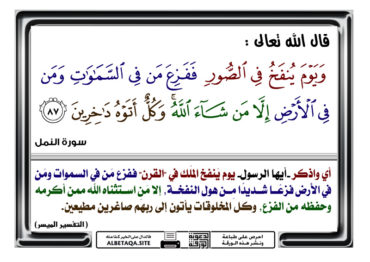 قال الله تعالى :
وَيَوْمَ يُنفَخُ فِي الصُّورِ فَفَزِعَ مَن فِي السَّمَٰوَٰتِ وَمَن
فِي الْأَرْضِ إِلَّا مَن شَآءَ اللَّهُ ۚ وَكُلٌّ أَتَوْهُ دَٰخِرِينَ ﴿٨٧﴾
سورة النمل
أي واذكر -أيها الرسول- يوم يَنفخ المَلَك في "القرن" ففزع من في السموات ومَن
في الأرض فزعًا شديدًا من هول النفخة، إلا من استثناه الله ممن أكرمه
وحفظه من الفزع، وكل المخلوقات يأتون إلى ربهم صاغرين مطيعين.
(التفسير الميسر)
ALBETAQA.SITE
احرص على طباعة
ونشر هذه الورقة